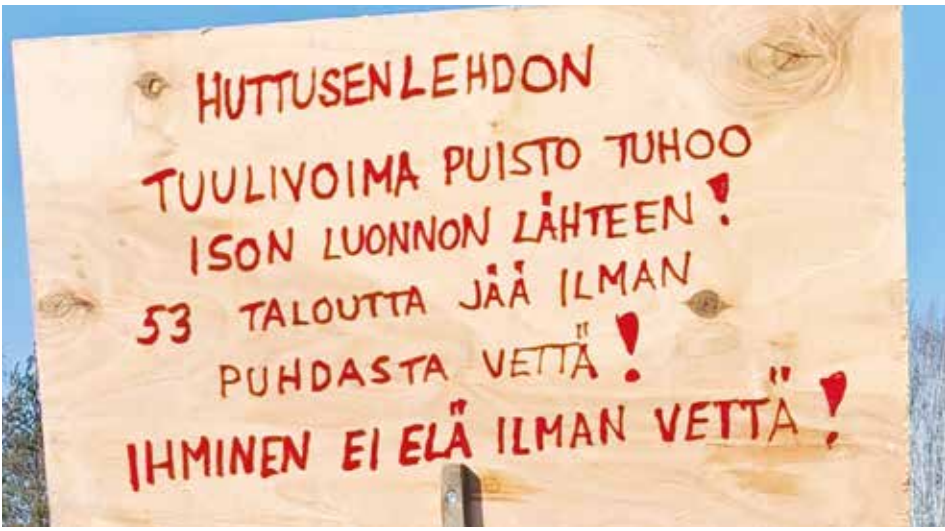 HUTTUSENLEHDON
TUULIVOIMA PUISTO TUHOO
ISON LUONNON LÄHTEEN!
53 TALOUTTA JÄÄ ILMAN
PUHDASTA VETTÄ!
IHMINEN EI ELÄ ILMAN VETTÄ!